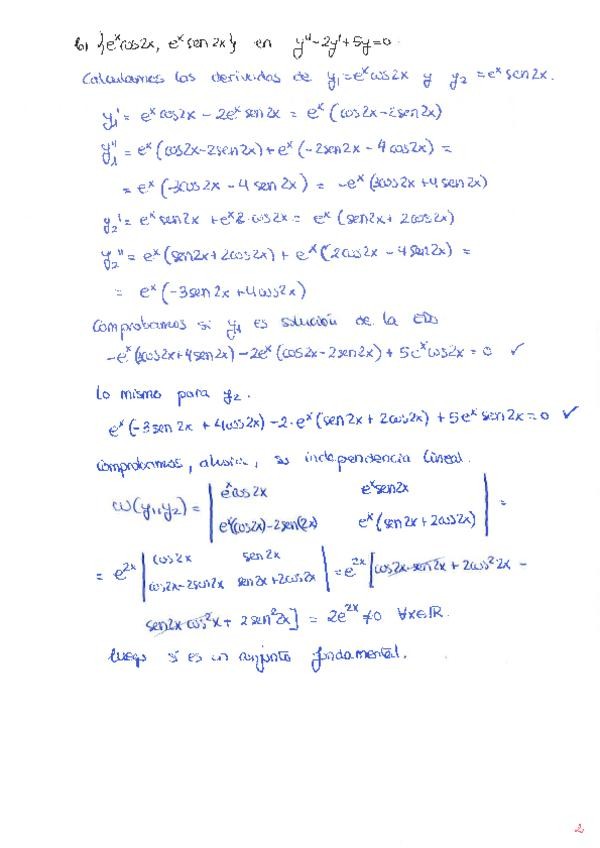 b) {eˣcos2x, eˣsen2x} en y''-2y'+5y=0.
Calculamos las derivadas de y₁=eˣcos2x y y₂=eˣsen2x.
y₁' = eˣcos2x - 2eˣsen2x = eˣ(cos2x-2sen2x)
y₁'' = eˣ(cos2x-2sen2x)+eˣ(-2sen2x-4cos2x) =
= eˣ(-3cos2x-4sen2x) = -eˣ(3cos2x+4sen2x)
y₂' = eˣsen2x + eˣ2 cos2x = eˣ(sen2x+2cos2x)
y₂'' = eˣ(sen2x+2cos2x) + eˣ(2cos2x-4sen2x) =
= eˣ(-3sen2x+4cos2x)
Comprobamos si y₁ es solución de la EDO
-eˣ(3cos2x+4sen2x)-2eˣ(cos2x-2sen2x)+5eˣcos2x=0 ✓
Lo mismo para y₂.
eˣ(-3sen2x+4cos2x)-2·eˣ(sen2x+2cos2x)+5eˣsen2x=0 ✓
Comprobamos, ahora, su independencia lineal.
ω(y₁,y₂) = | eˣcos2x eˣsen2x |
| eˣ(cos2x)-2sen(2x) eˣ(sen2x+2cos2x) | =
= e²ˣ | cos2x sen2x |
| cos2x-2sen2x sen2x+2cos2x | = e²ˣ[cos2x·sen2x+2cos²2x -
sen2x cos²x + 2sen²2x] = 2e²ˣ ≠0 ∀x∈ℝ.
Luego sí es un conjunto fundamental.
2